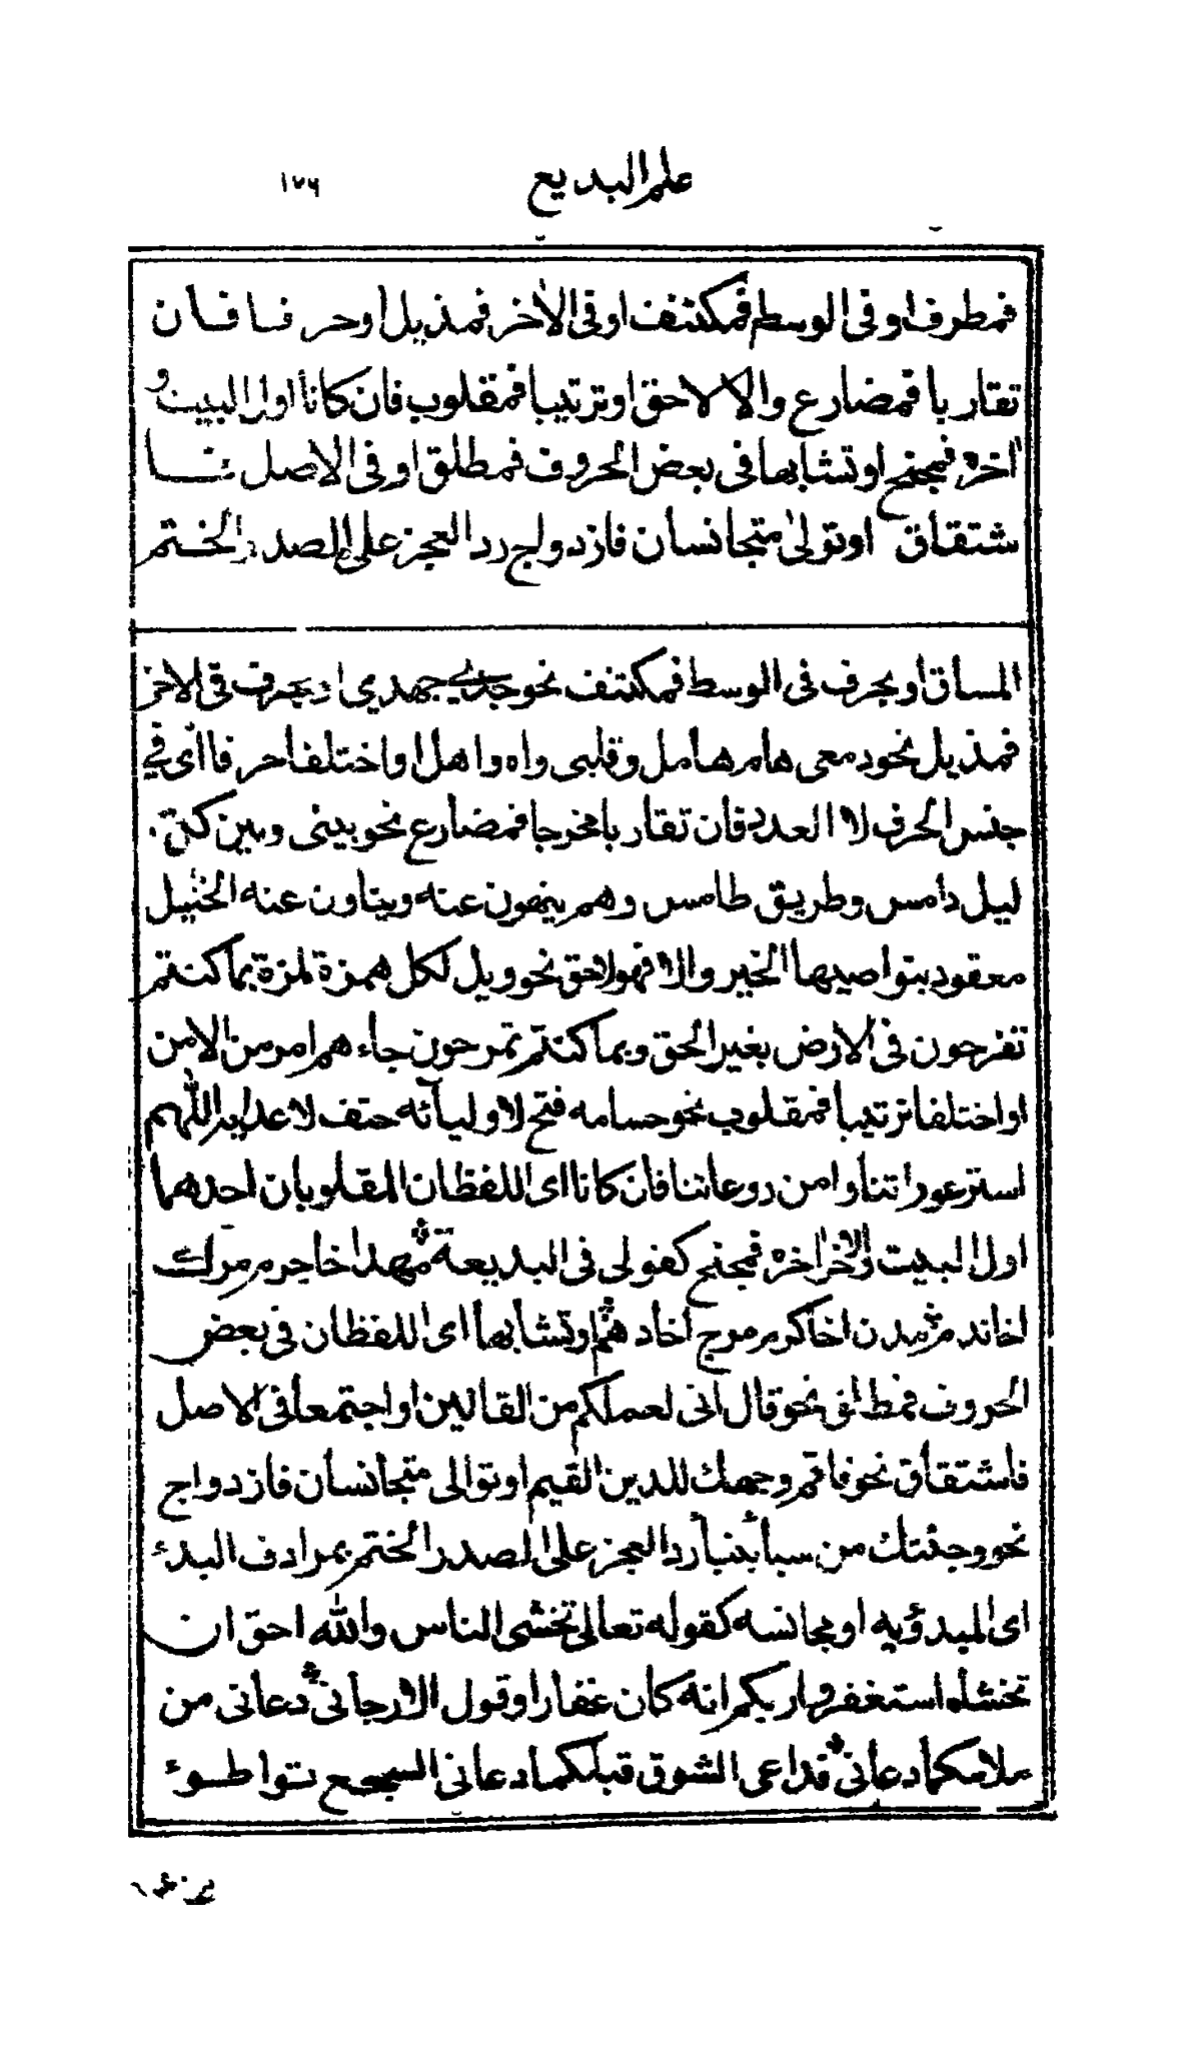 علم البديع ١٧٦
فمطرف او في الوسط فمكتنف او في الاخر فمذيل او حرفا فان
تقاربا فمضارع والا لاحق او ترتيبا فمقلوب فان كانا اول البيت و
اخره فمجنح او تشابها في بعض الحروف فمطلق او في الاصل فا
شتقاق او توالى متجانسان فازدواج رد العجز على الصدر الختم
المساق او بحرف في الوسط فمكتنف نحو جدي جهدي او بحرف في الاخر
فمذيل نحو دمعي هام هامل وقلبي واه واهل او اختلفا حرفا اي في
جنس الحرف لا العدد فان تقاربا مخرجا فمضارع نحو بيني وبين كني
ليل دامس وطريق طامس وهم ينهون عنه ويناون عنه الخيل
معقود بنواصيها الخير والا فهو لاحق نحو ويل لكل همزة لمزة بما كنتم
تفرحون في الارض بغير الحق وبما كنتم تمرحون جاءهم امر من الامن
او اختلفا ترتيبا فمقلوب نحو حسامه فتح لاوليائه حتف لاعدايه اللهم
استر عوراتنا وامن روعاتنا فان كانا اي اللفظان المقلوبان احدهما
اول البيت والاخر اخره فمجنح كقولي في البديعة
اوتشابها اي اللفظان في بعض
الحروف فمطلق نحو قال اني لعملكم من القالين او اجتمعا في الاصل
فاشتقاق نحو فاقم وجهك للدين القيم او توالى متجانسان فازدواج
نحو وجئتك من سبأ بنبأ رد العجز على الصدر الختم بمرادف البدء
اي المبدؤ به او مجانسه كقوله تعالى تخشى الناس والله احق ان
تخشاه استغفروا ربكم انه كان غفارا وقول الارجاني دعاني من
ملامكما دعاني فداعي الشوق قبلكما دعاني السجع تواطوء